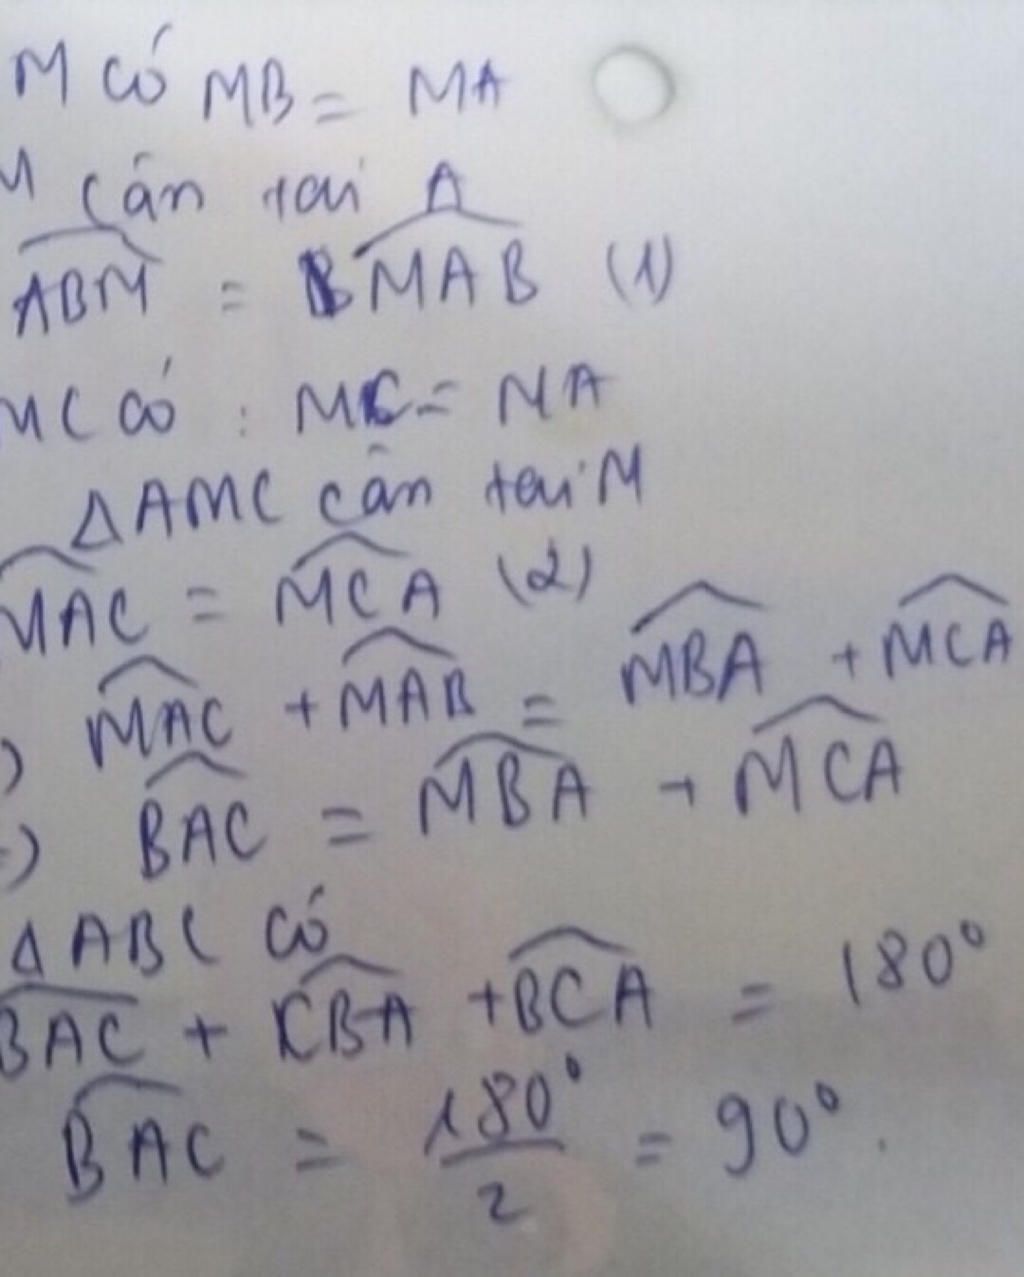 M có MB = MA
M cân tại A
ABM = MAB (1)
MC có : MC = MA
ΔAMC cân tại M
MAC = MCA (2)
) MAC + MAB = MBA + MCA
=) BAC = MBA + MCA
ΔABC có
BAC + CBA + BCA = 180°
BAC = 180°/2 = 90°.